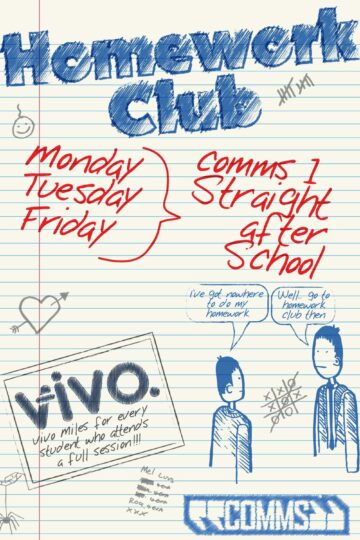 Homework
Club
Monday
Tuesday
Friday
comms 1
Straight
after
School
I've got nowhere
to do my
homework
Well.. go to
homework
club then
vivo.
vivo miles for every
student who attends
a full session!!!
Mel Luvs
xxx
COMMS